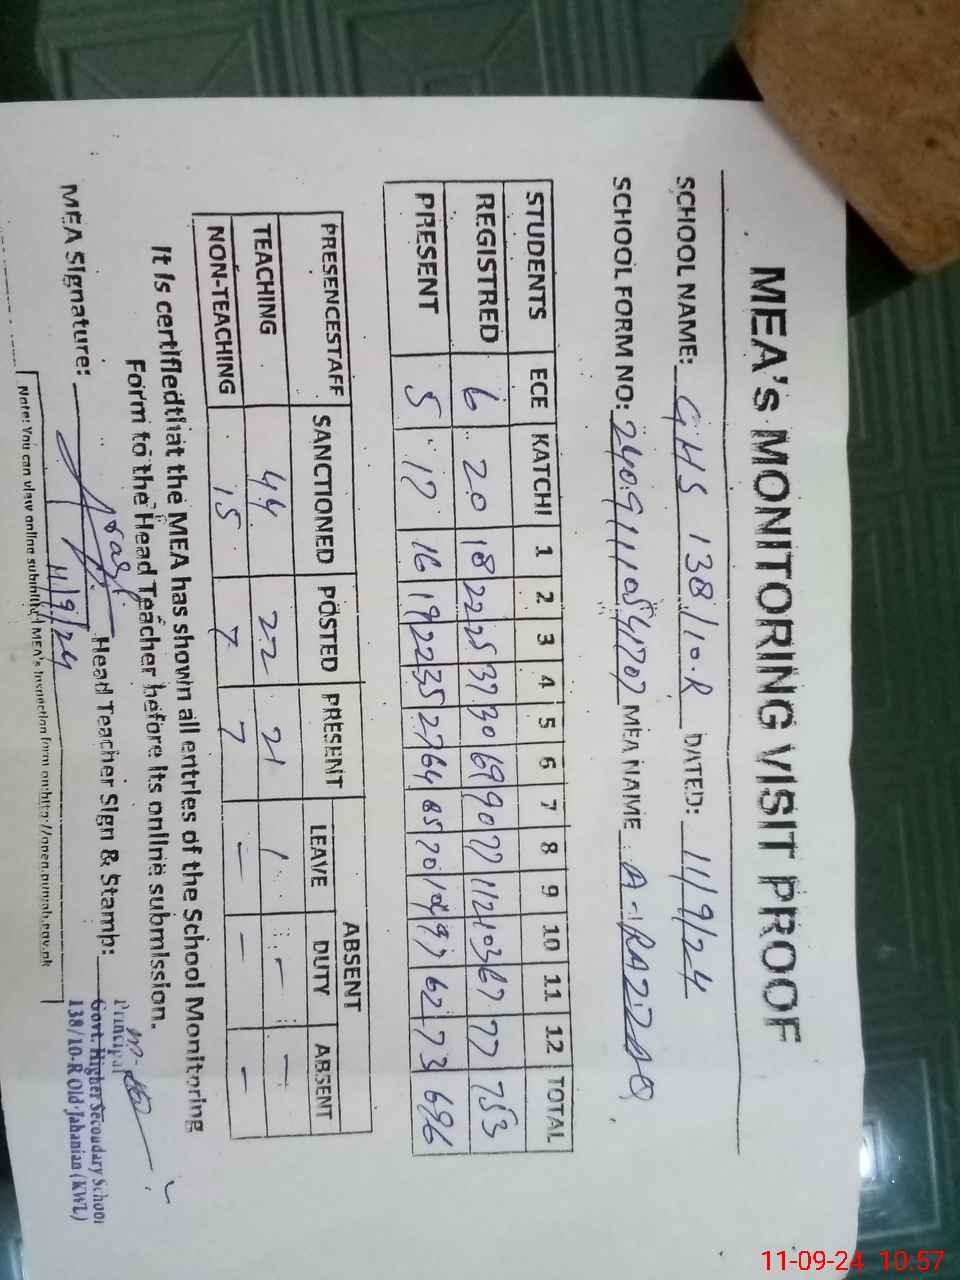 MEA's MONITORING VISIT PROOF
SCHOOL NAME: GHS 138/10.R DATED: 11/9/24
SCHOOL FORM NO: MEA NAME A-RAZZAQ
STUDENTS ECE KATCHI 1 2 3 4 5 6 7 8 9 10 11 12 TOTAL
REGISTRED 6 20 18 22 25 37 30 69 90 77 112 103 67 77 753
PRESENT 5 17 16 19 22 35 27 64 85 70 104 97 62 73 696
PRESENCESTAFF SANCTIONED POSTED PRESENT ABSENT
LEAVE DUTY ABSENT
TEACHING 44 22 21 1 - -
NON-TEACHING 15 7 7 - - -
It is certifiedthat the MEA has shown all entries of the School Monitoring
Form to the Head Teacher before its online submission.
MEA Signature: Head Teacher Sign & Stamp:
11/9/24
Principal
Govt. Higher Secondary School
138/10-R Old Jahanian (KWL)
Note: You can view online submitted MEA's Inspection form on http://open.punjab.gov.pk
11-09-24 10:57